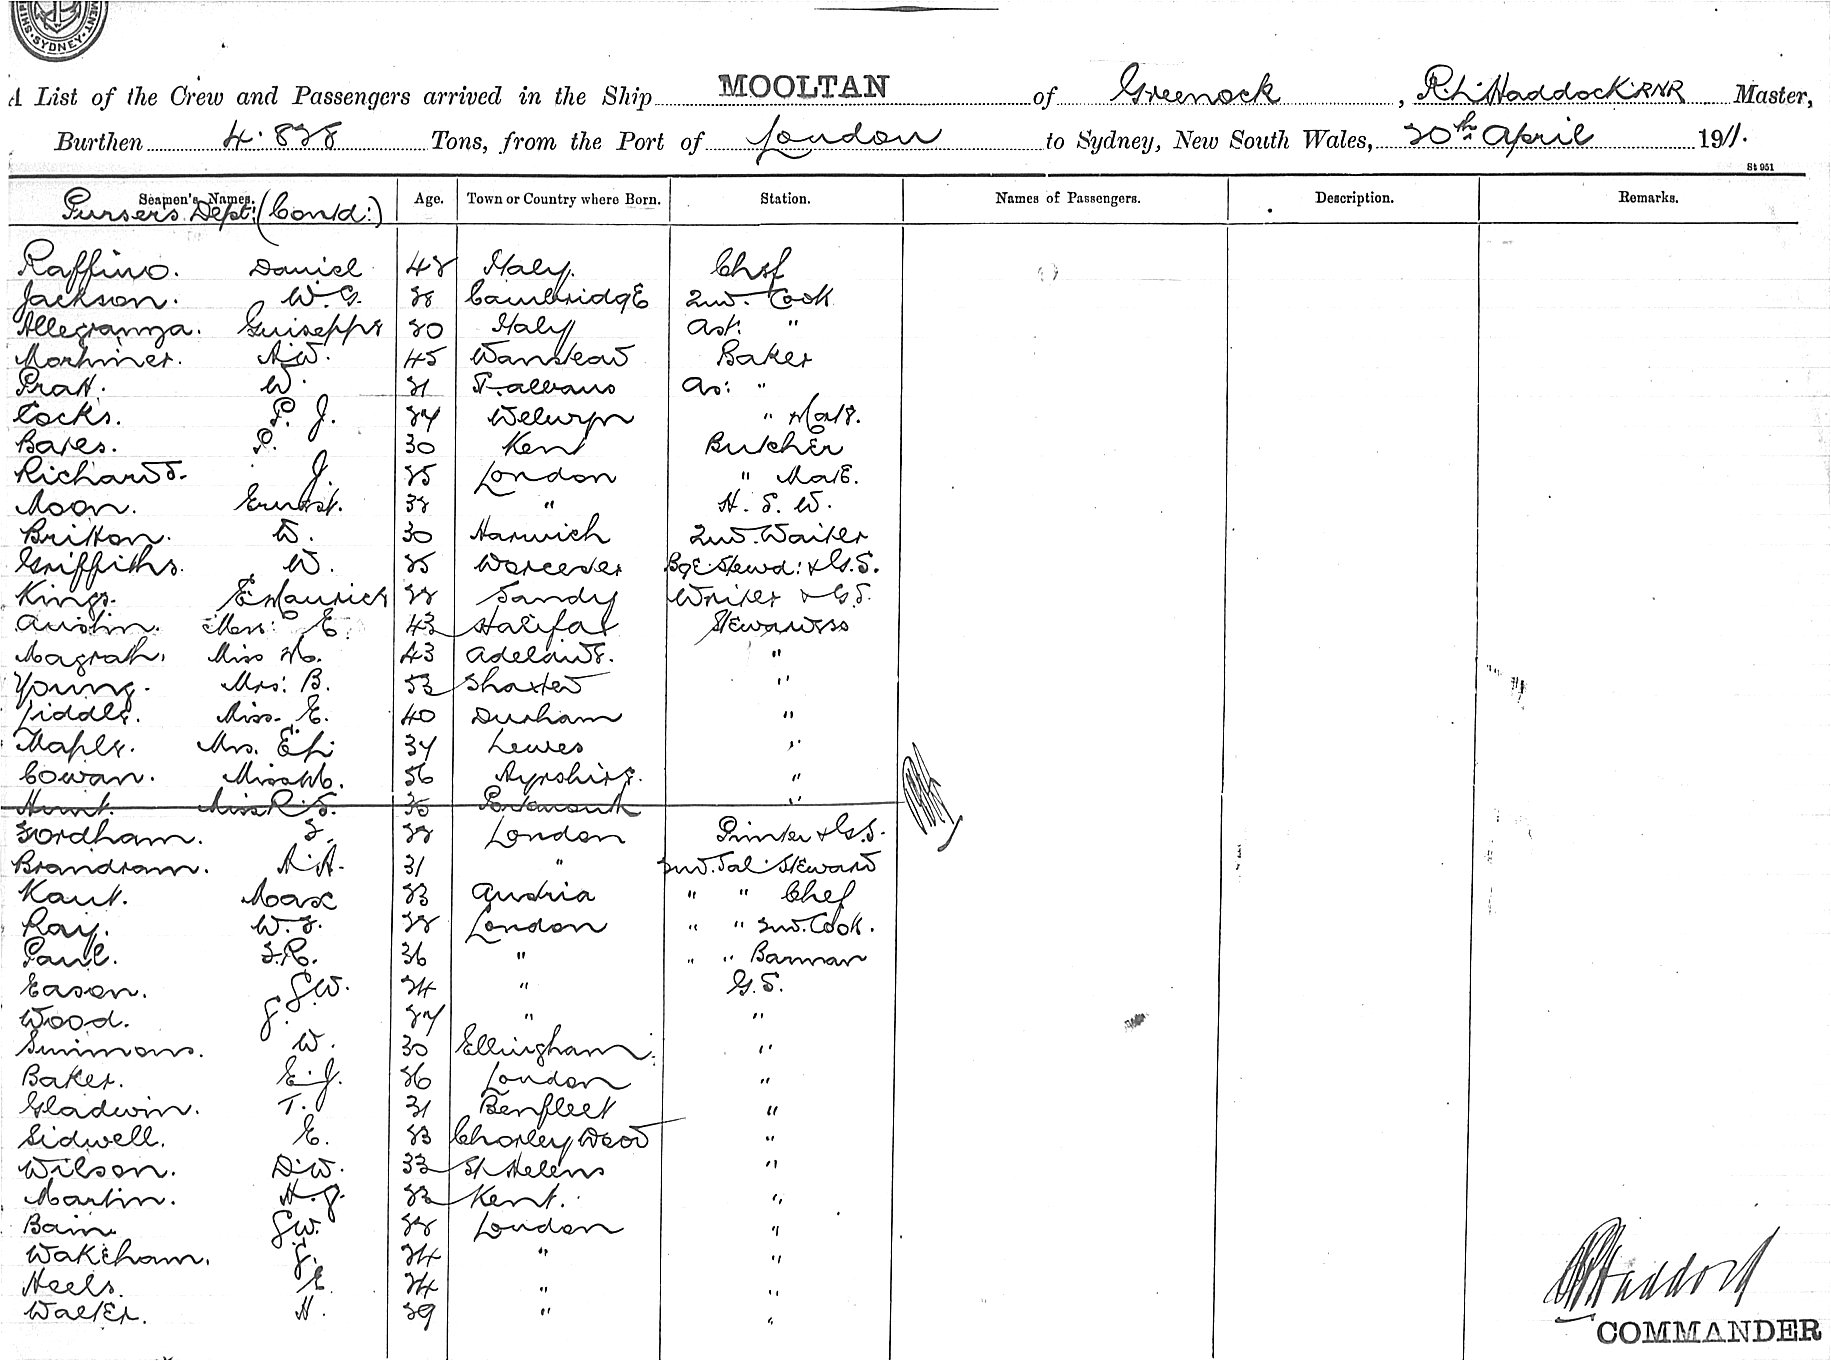 SYDNEY
A List of the Crew and Passengers arrived in the Ship MOOLTAN of Greenock, R.L. Haddock. RNR Master,
Burthen Tons, from the Port of London to Sydney, New South Wales, 20th April 1911.
St 951
Seamen's Names. Age. Town or Country where Born. Station. Names of Passengers. Description. Remarks.
Pursers Dept: (Contd:)
Raffino. Daniel 48 Italy. Chef
Jackson. W.G. 28 Cambridge 2nd. Cook
Allegranza. Guiseppe 20 Italy Ast. "
Mortimer. A.W. 45 Wanstead Baker
Pratt. W. 21 St. Albans As: "
Cocks. P. J. 24 Welwyn " Mate.
Bates. P. 30 Kent Butcher
Richards. J. 25 London " Mate.
Moon. Ernest. 38 " H. S. W.
Britton. W. 30 Harwich 2nd. Waiter
Griffiths. W. 25 Worcester Bge. Stewd: & G.S.
Kings. E Maurice 28 Sandy Writer & G.S.
Austin. Mrs: E. 43 Halifax Stewardess
Magrath. Miss M. 43 Adelaide. "
Young. Mrs: B. 53 "
Miss. E. 40 Durham "
Maple. Mrs. 34 Lewes "
Cowan. Miss M. 56 Ayrshire. "
Hunt. Miss R. S. 35 Portsmouth "
Fordham. F. 28 London Printer & G.S.
Brandram. A.A. 31 " 2nd. Sal. Steward
Kant. Max 23 Austria " " Chef
Ray. W. F. 28 London " " 2nd. Cook.
Paul. F.R. 36 " " " Barman
Eason. G.W. 24 " G.S.
Wood. J. 24 " "
Simmons. W. 30 Ellingham. "
Baker. E.J. 26 London "
Gladwin. T. 31 Benfleet "
Sidwell. E. 23 Chorley Wood "
Wilson. D.W. 33 St Helens "
Martin. H.J. 23 Kent. "
Bain. G.W. 28 London "
Wakeham. J. 24 " "
Heels. E. 24 " "
Walter. H. 29 " "
RL Haddock
COMMANDER